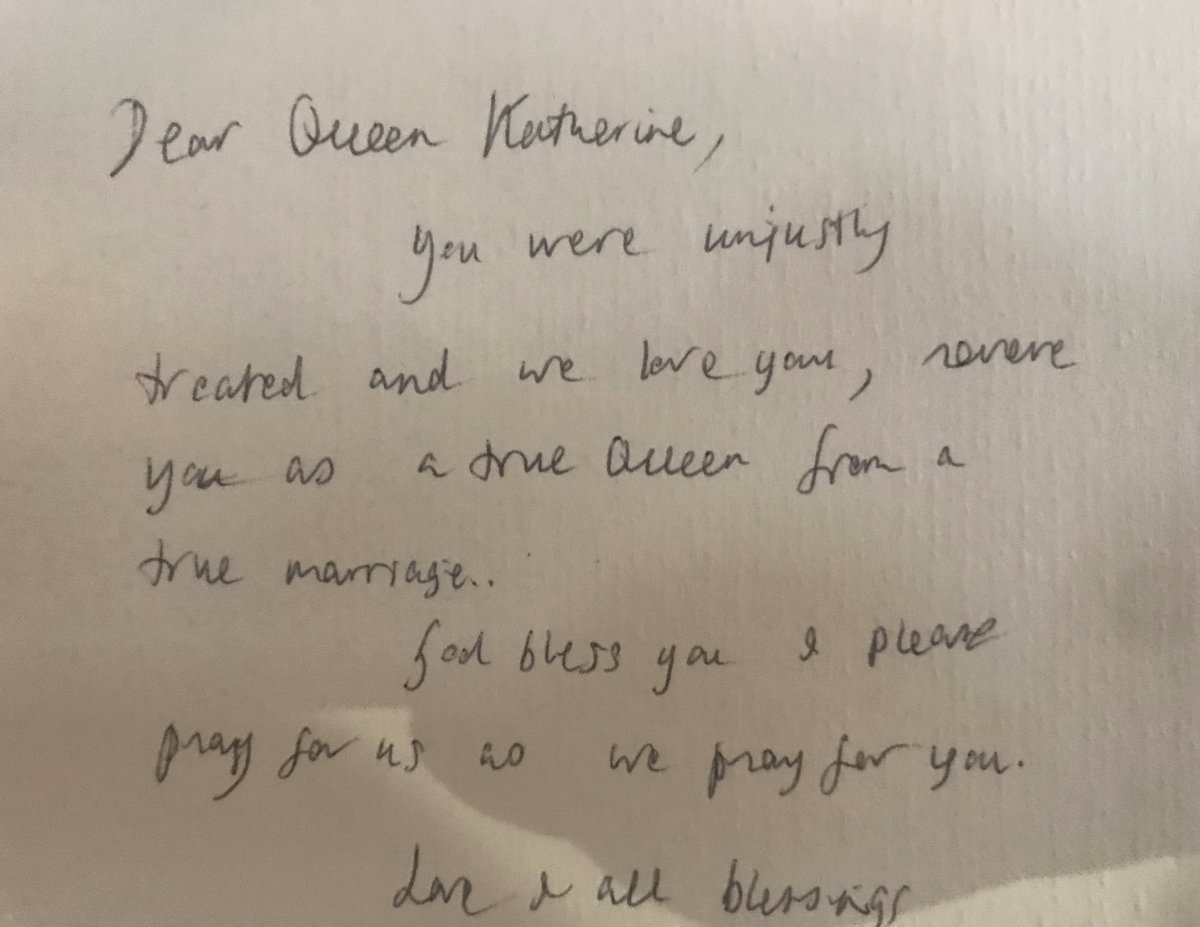 Dear Queen Katherine,
you were unjustly
treated and we love you, revere
you as a true Queen from a
true marriage..
God bless you & please
pray for us as we pray for you.
Love & all blessings